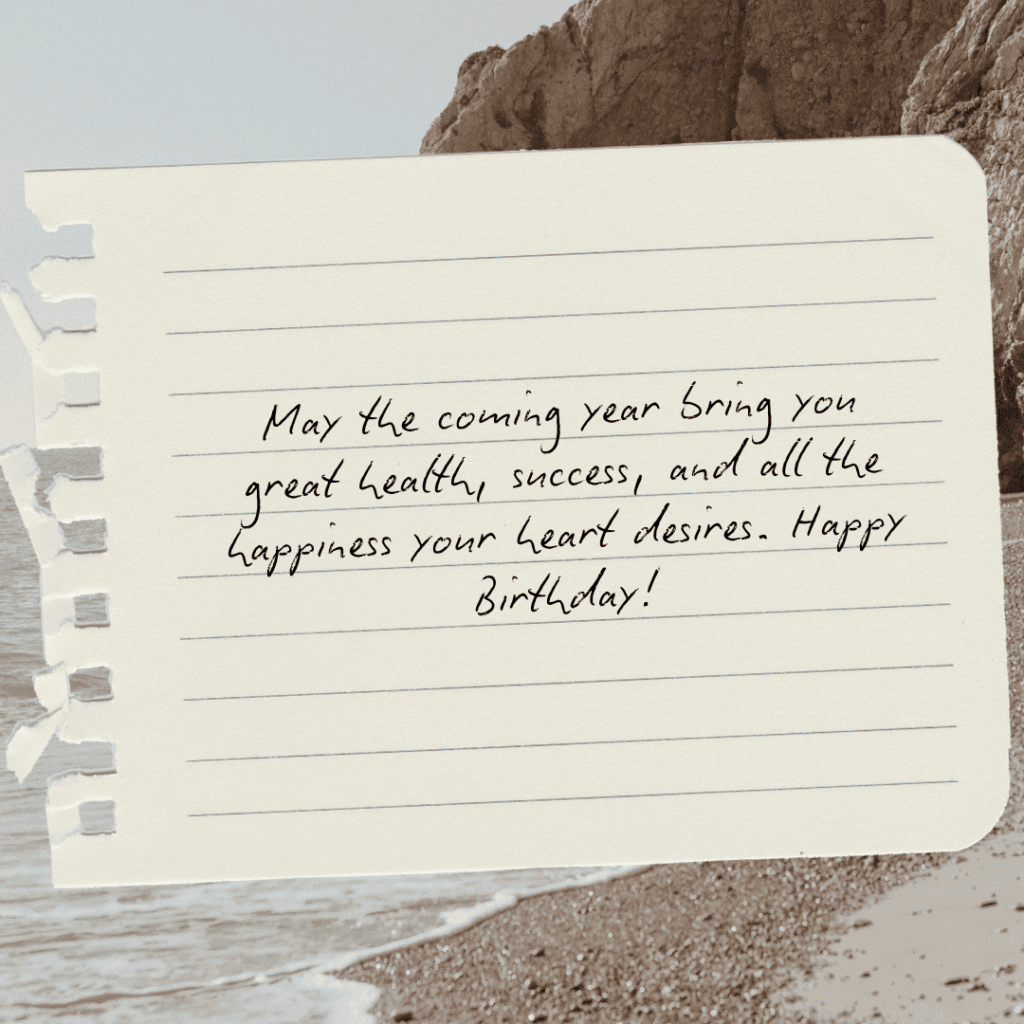 May the coming year bring you
great health, success, and all the
happiness your heart desires. Happy
Birthday!